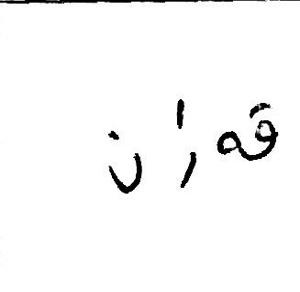 قەران